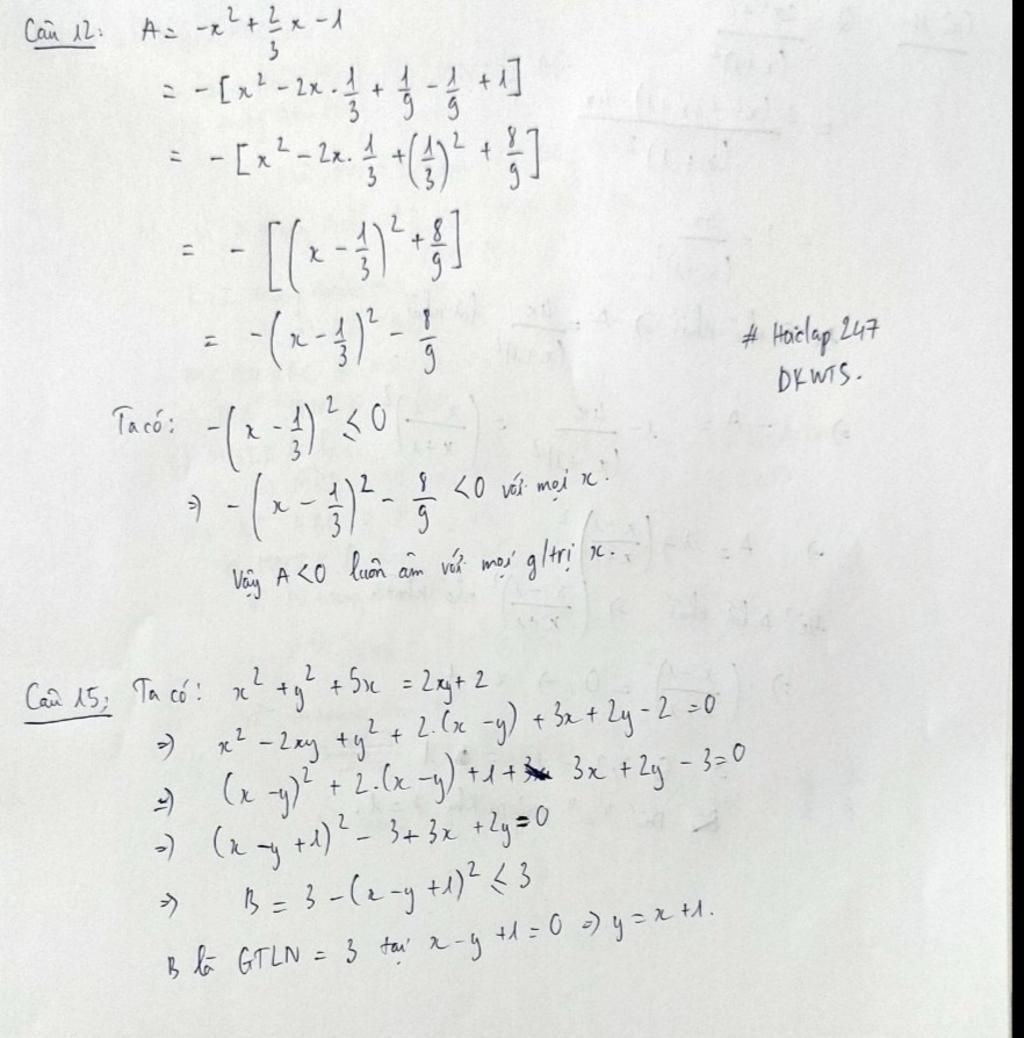 Câu 12: A = -x² + 2/3 x - 1
= - [x² - 2x . 1/3 + 1/9 - 1/9 + 1]
= - [x² - 2x . 1/3 + (1/3)² + 8/9]
= - [(x - 1/3)² + 8/9]
= - (x - 1/3)² - 8/9
# Hoiclap 247
DKWTS.
Ta có: - (x - 1/3)² ≤ 0
=> - (x - 1/3)² - 8/9 < 0 với mọi x.
Vậy A < 0 luôn âm với mọi g/trị x.
Câu 15: Ta có: x² + y² + 5x = 2xy + 2
=> x² - 2xy + y² + 2.(x - y) + 3x + 2y - 2 = 0
=> (x - y)² + 2.(x - y) + 1 + 3x + 2y - 3 = 0
=> (x - y + 1)² - 3 + 3x + 2y = 0
=> B = 3 - (x - y + 1)² ≤ 3
B là GTLN = 3 tại x - y + 1 = 0 => y = x + 1.